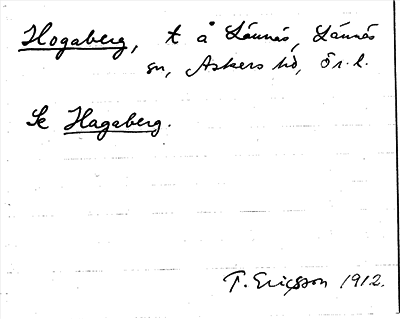 Hogaberg, t å Lännäs, Lännäs
sn, Askers hd, Ör. l.
Se Hagaberg.
T. Ericsson 1912.